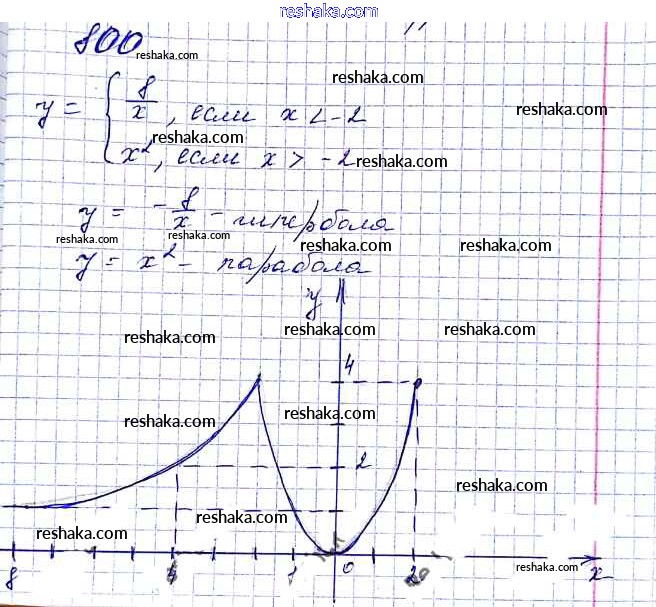 reshaka.com
800
reshaka.com
reshaka.com
y = { 8/x, если x < -2
reshaka.com
reshaka.com
x², если x > -2
reshaka.com
y = -8/x - гипербола
reshaka.com
reshaka.com
reshaka.com
reshaka.com
y = x² - парабола
y
reshaka.com
reshaka.com
reshaka.com
4
reshaka.com
reshaka.com
2
reshaka.com
reshaka.com
reshaka.com
8 1 0 2 x
reshaka.com